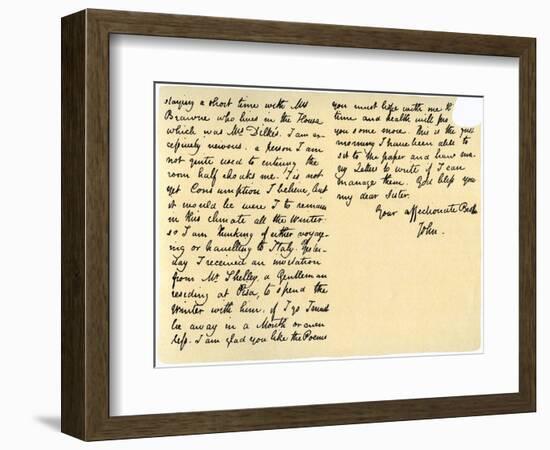 staying a short time with Mrs
Brawne who lives in the House
which was Mrs Dilke's. I am ex-
cessively nervous: a person I am
not quite used to entering the
room half choaks me. 'Tis not
yet Consumption I believe, but
it would be were I to remain
in this climate all the Winter:
so I am thinking of either voyag-
ing or travelling to Italy. Yester-
day I received an invitation
from Mr Shelley, a Gentleman
residing at Pisa, to spend the
Winter with him: if I go I must
be away in a Month or even
less. I am glad you like the Poems
you must hope with me
time and health will
you some more. This is the
morning I have been able to
sit to the paper and have ma-
ny Letters to write if I can
manage them. God bless you
my dear Sister.
Your affectionate
John.